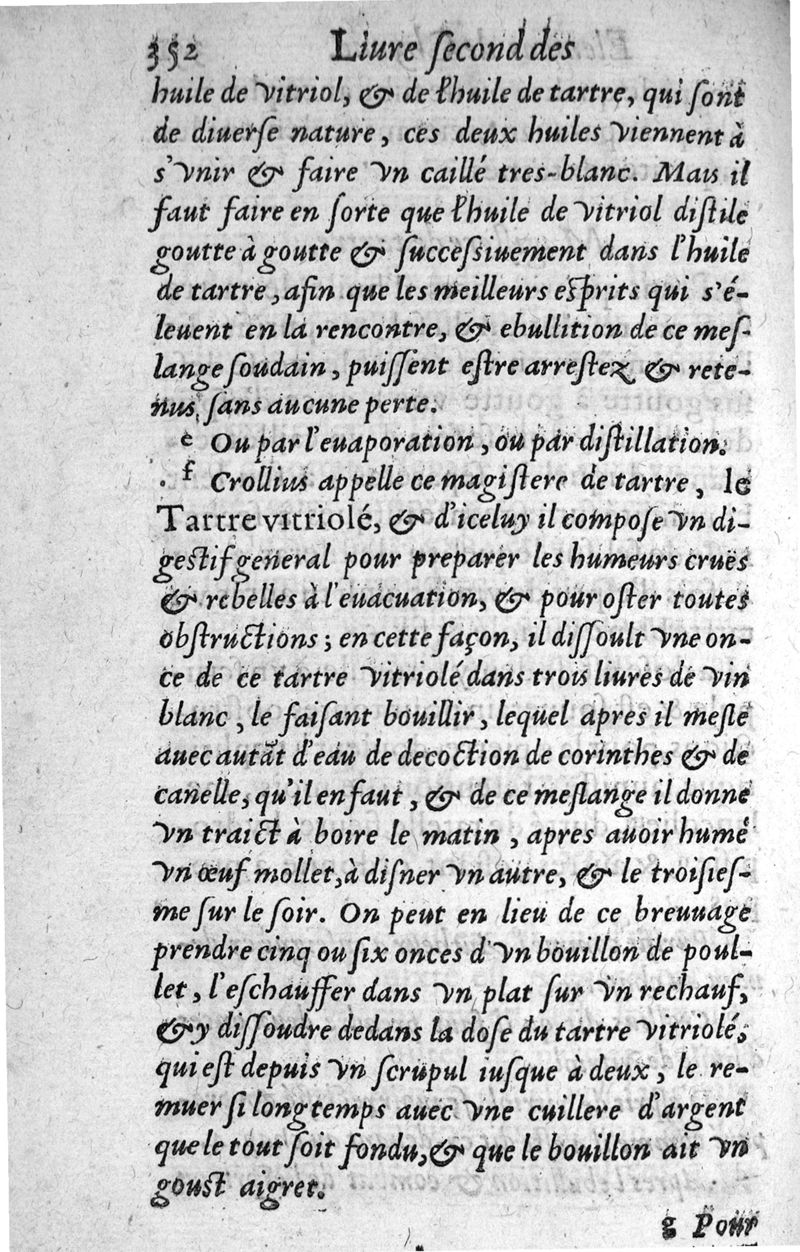 352 Liure ſecond des
huile de vitriol, & de l'huile de tartre, qui ſont
de diuerſe nature, ces deux huiles viennent à
s'vnir & faire vn caillé tres-blanc. Mais il
faut faire en ſorte que l'huile de vitriol diſtile
goutte à goutte & ſucceſſiuement dans l'huile
de tartre, afin que les meilleurs eſprits qui s'é-
leuent en la rencontre, & ebullition de ce meſ-
lange ſoudain, puiſſent eſtre arreſtez & rete-
nus, ſans aucune perte.
e Ou par l'euaporation, ou par diſtillation.
f Crollius appelle ce magiſtere de tartre, le
Tartre vitriolé, & d'iceluy il compoſe vn di-
geſtif general pour preparer les humeurs cruës
& rebelles à l'euacuation, & pour oſter toutes
obſtructions; en cette façon, il diſſoult vne on-
ce de ce tartre vitriolé dans trois liures de vin
blanc, le faiſant bouillir, lequel apres il meſle
auec autãt d'eau de decoction de corinthes & de
canelle, qu'il en faut, & de ce meſlange il donne
vn traict à boire le matin, apres auoir humé
vn œuf mollet, à diſner vn autre, & le troiſieſ-
me ſur le ſoir. On peut en lieu de ce breuuage
prendre cinq ou ſix onces d'vn bouillon de poul-
let, l'eſchauffer dans vn plat ſur vn rechauf,
& y diſſoudre dedans la doſe du tartre vitriolé,
qui eſt depuis vn ſcrupul iuſque à deux, le re-
muer ſi long temps auec vne cuillere d'argent
que le tout ſoit fondu, & que le bouillon ait vn
gouſt aigret.
g Pour